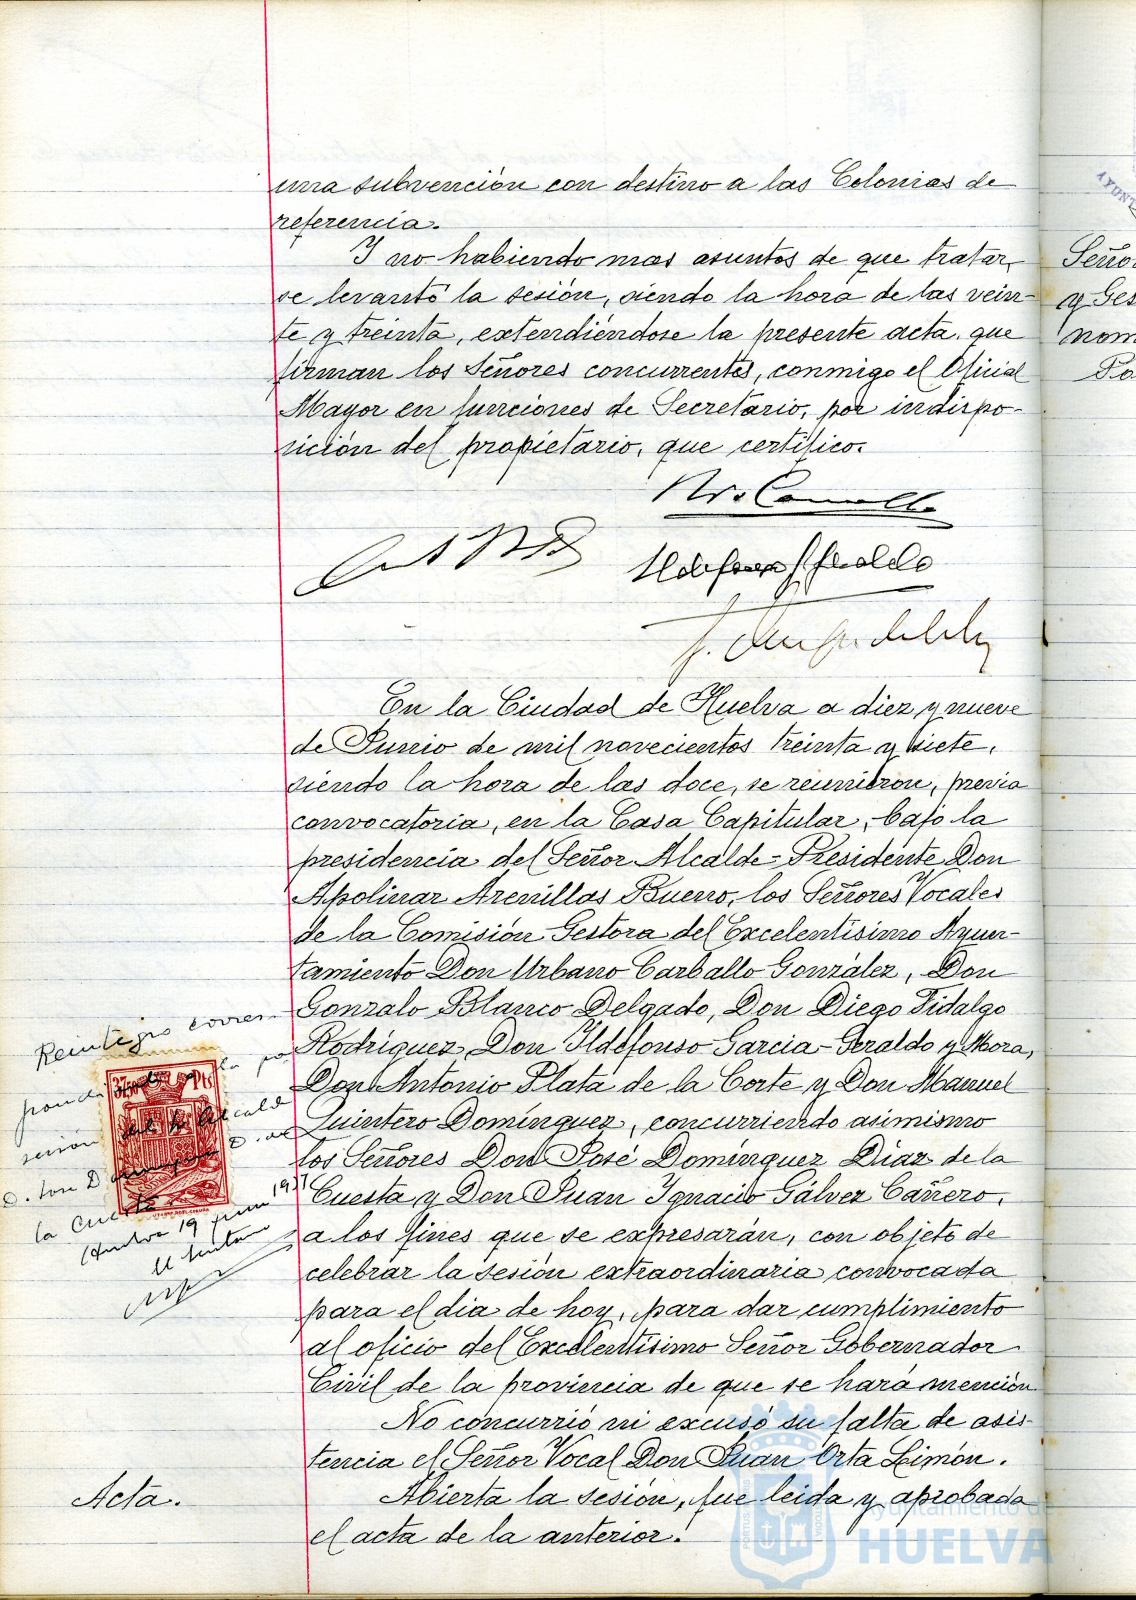 una subvención con destino a las Colonias de
referencia.
Y no habiendo mas asuntos de que tratar,
se levantó la sesión, siendo la hora de las vein-
te y treinta, extendiéndose la presente acta, que
firman los Señores concurrentes, conmigo el Oficial
Mayor en funciones de Secretario, por indispo-
sición del propietario, que certifico.
En la Ciudad de Huelva a diez y nueve
de Junio de mil novecientos treinta y siete,
siendo la hora de las doce, se reunieron, previa
convocatoria, en la Casa Capitular, bajo la
presidencia del Señor Alcalde-Presidente Don
Apolinar Arenillas Bueno, los Señores Vocales
de la Comisión Gestora del Excelentísimo Ayun-
tamiento Don Urbano Carballo González, Don
Gonzalo Blanco Delgado, Don Diego Fidalgo
Rodríguez, Don Ildefonso Garcia-Geraldo y Mora,
Don Antonio Plata de la Corte y Don Manuel
Quintero Domínguez, concurriendo asimismo
los Señores Don José Domínguez Diaz de la
Cuesta y Don Juan Ignacio Gálvez Cañero,
a los fines que se expresarán, con objeto de
celebrar la sesión extraordinaria convocada
para el dia de hoy, para dar cumplimiento
al oficio del Excelentísimo Señor Gobernador
Civil de la provincia de que se hará mención
No concurrió ni excusó su falta de asis-
tencia el Señor Vocal Don Juan Orta Limón.
Abierta la sesión, fue leida y aprobada
el acta de la anterior.
Reintegro corres-
la Cuesta
Huelva 19 junio 1937
Acta.
Señor
y Ges
nom
Ayuntamiento de
HUELVA